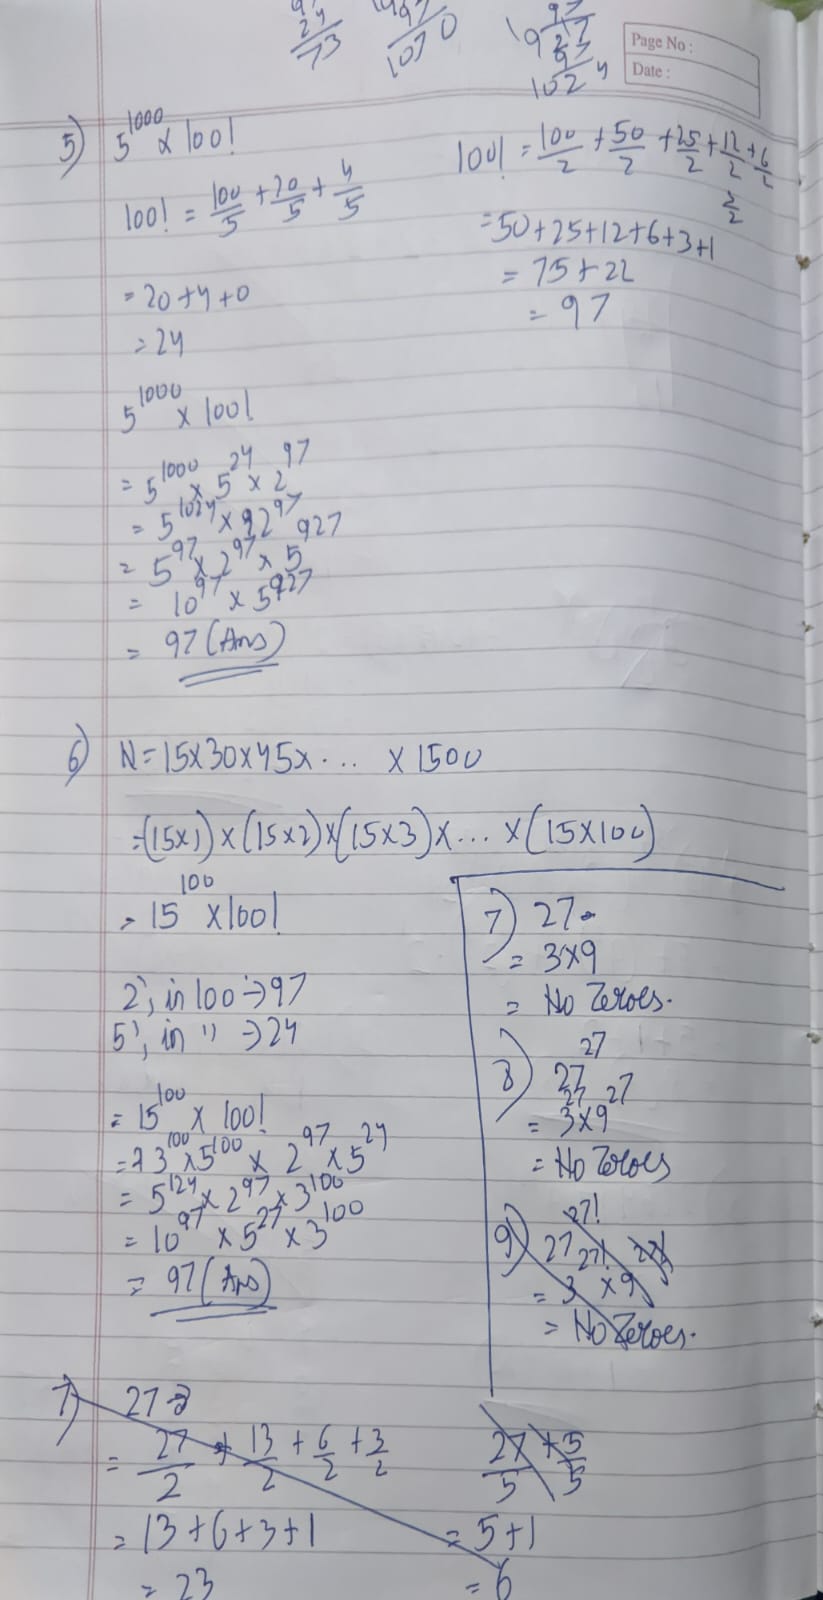 24
73
1070
1927
97
1024
Page No :
Date :
5) 5^1000 x 100!
100! = 100/5 + 20/5 + 4/5
= 20 + 4 + 0
= 24
100! = 100/2 + 50/2 + 25/2 + 12/2 + 6/2
3/2
= 50 + 25 + 12 + 6 + 3 + 1
= 75 + 22
= 97
5^1000 x 100!
= 5^1000 x 5^24 x 2^97
= 5^1024 x 2^97
= 5^97 x 2^97 x 5^927
= 10^97 x 5^927
= 97 (Ans)
6) N = 15 x 30 x 45 x ... x 1500
= (15x1) x (15x2) x (15x3) x ... x (15x100)
= 15^100 x 100!
2', in 100 -> 97
5', in " -> 24
= 15^100 x 100!
= 3^100 x 5^100 x 2^97 x 5^24
= 5^124 x 2^97 x 3^100
= 10^97 x 5^27 x 3^100
= 97 (Ans)
7) 27
= 3x9
= No Zeroes.
8) 27^27
= 3^27 x 9^27
= No Zeroes
9) 27^27!
= 3^27! x 9^27!
= No Zeroes.
7) 27 ->
= 27/2 + 13/2 + 6/2 + 3/2
= 13 + 6 + 3 + 1
= 23
27/5 + 5/5
= 5 + 1
= 6